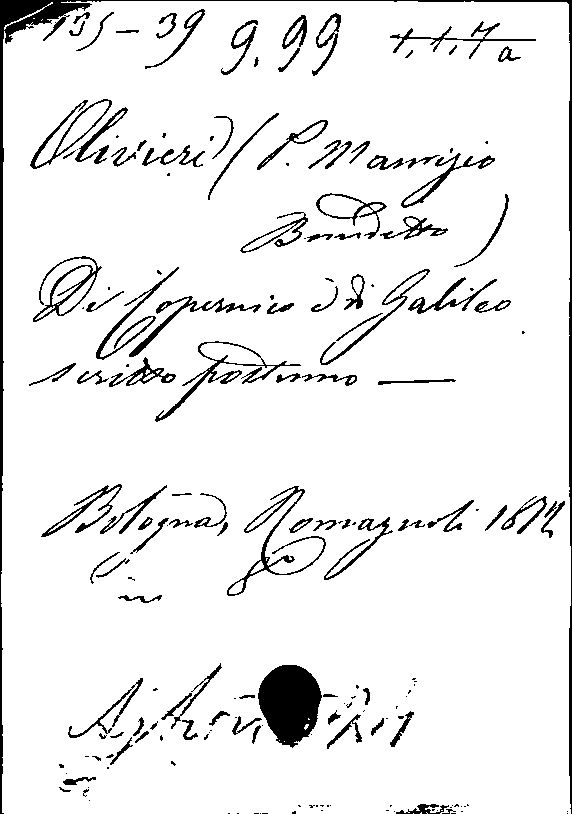 135-39 9.99 1.1.7a
Olivieri (P. Maurizio
Benedetto)
Di Copernico e di Galileo
scritto postumo —
Bologna, Romagnoli 1872
in 8vo